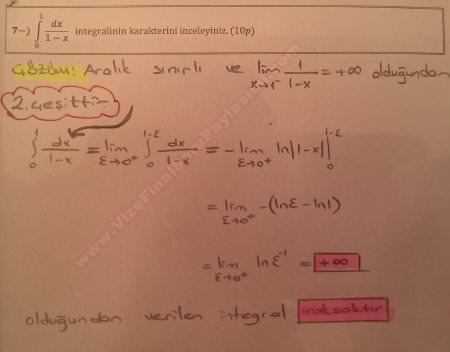 7-) ∫₀¹ dx/(1-x) integralinin karakterini inceleyiniz. (10p)
Çözüm: Aralık sınırlı ve lim_{x→1⁻} 1/(1-x) = +∞ olduğundan
2. çeşittir
∫₀¹ dx/(1-x) = lim_{ε→0⁺} ∫₀^{1-ε} dx/(1-x) = - lim_{ε→0⁺} ln|1-x| |₀^{1-ε}
= lim_{ε→0⁺} -(lnε - ln1)
= lim_{ε→0⁺} lnε⁻¹ = +∞
olduğundan verilen integral ıraksaktır
www.VizeFinalSoruPaylasimi.com